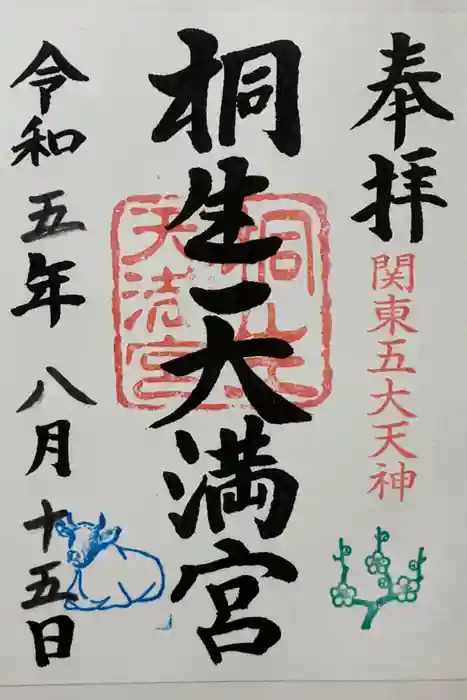 奉拝
関東五大天神
桐生天満宮
桐生天満宮
令和五年八月十五日